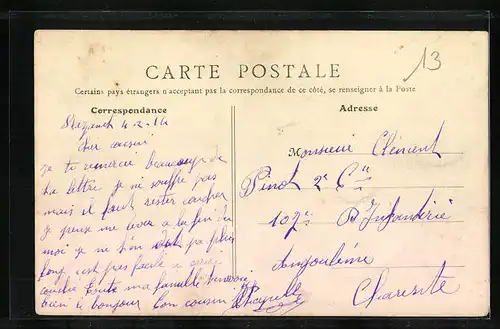 13
CARTE POSTALE
Certains pays étrangers n'acceptant pas la correspondance de ce côté, se renseigner à la Poste
Correspondance
4-2-14
Cher cousin
je te remercie beaucoup de
ta lettre je ne souffre pas
mais il faut rester coucher
je peux me lever a la fin du
moi je ne t'en pas plus
long c'est pas facile a
couche toute ma famille
bien le bonjour ton cousin
Adresse
Monsieur Clément
Pinot 2e Cie
107e R Infanterie
Angoulême
Charente